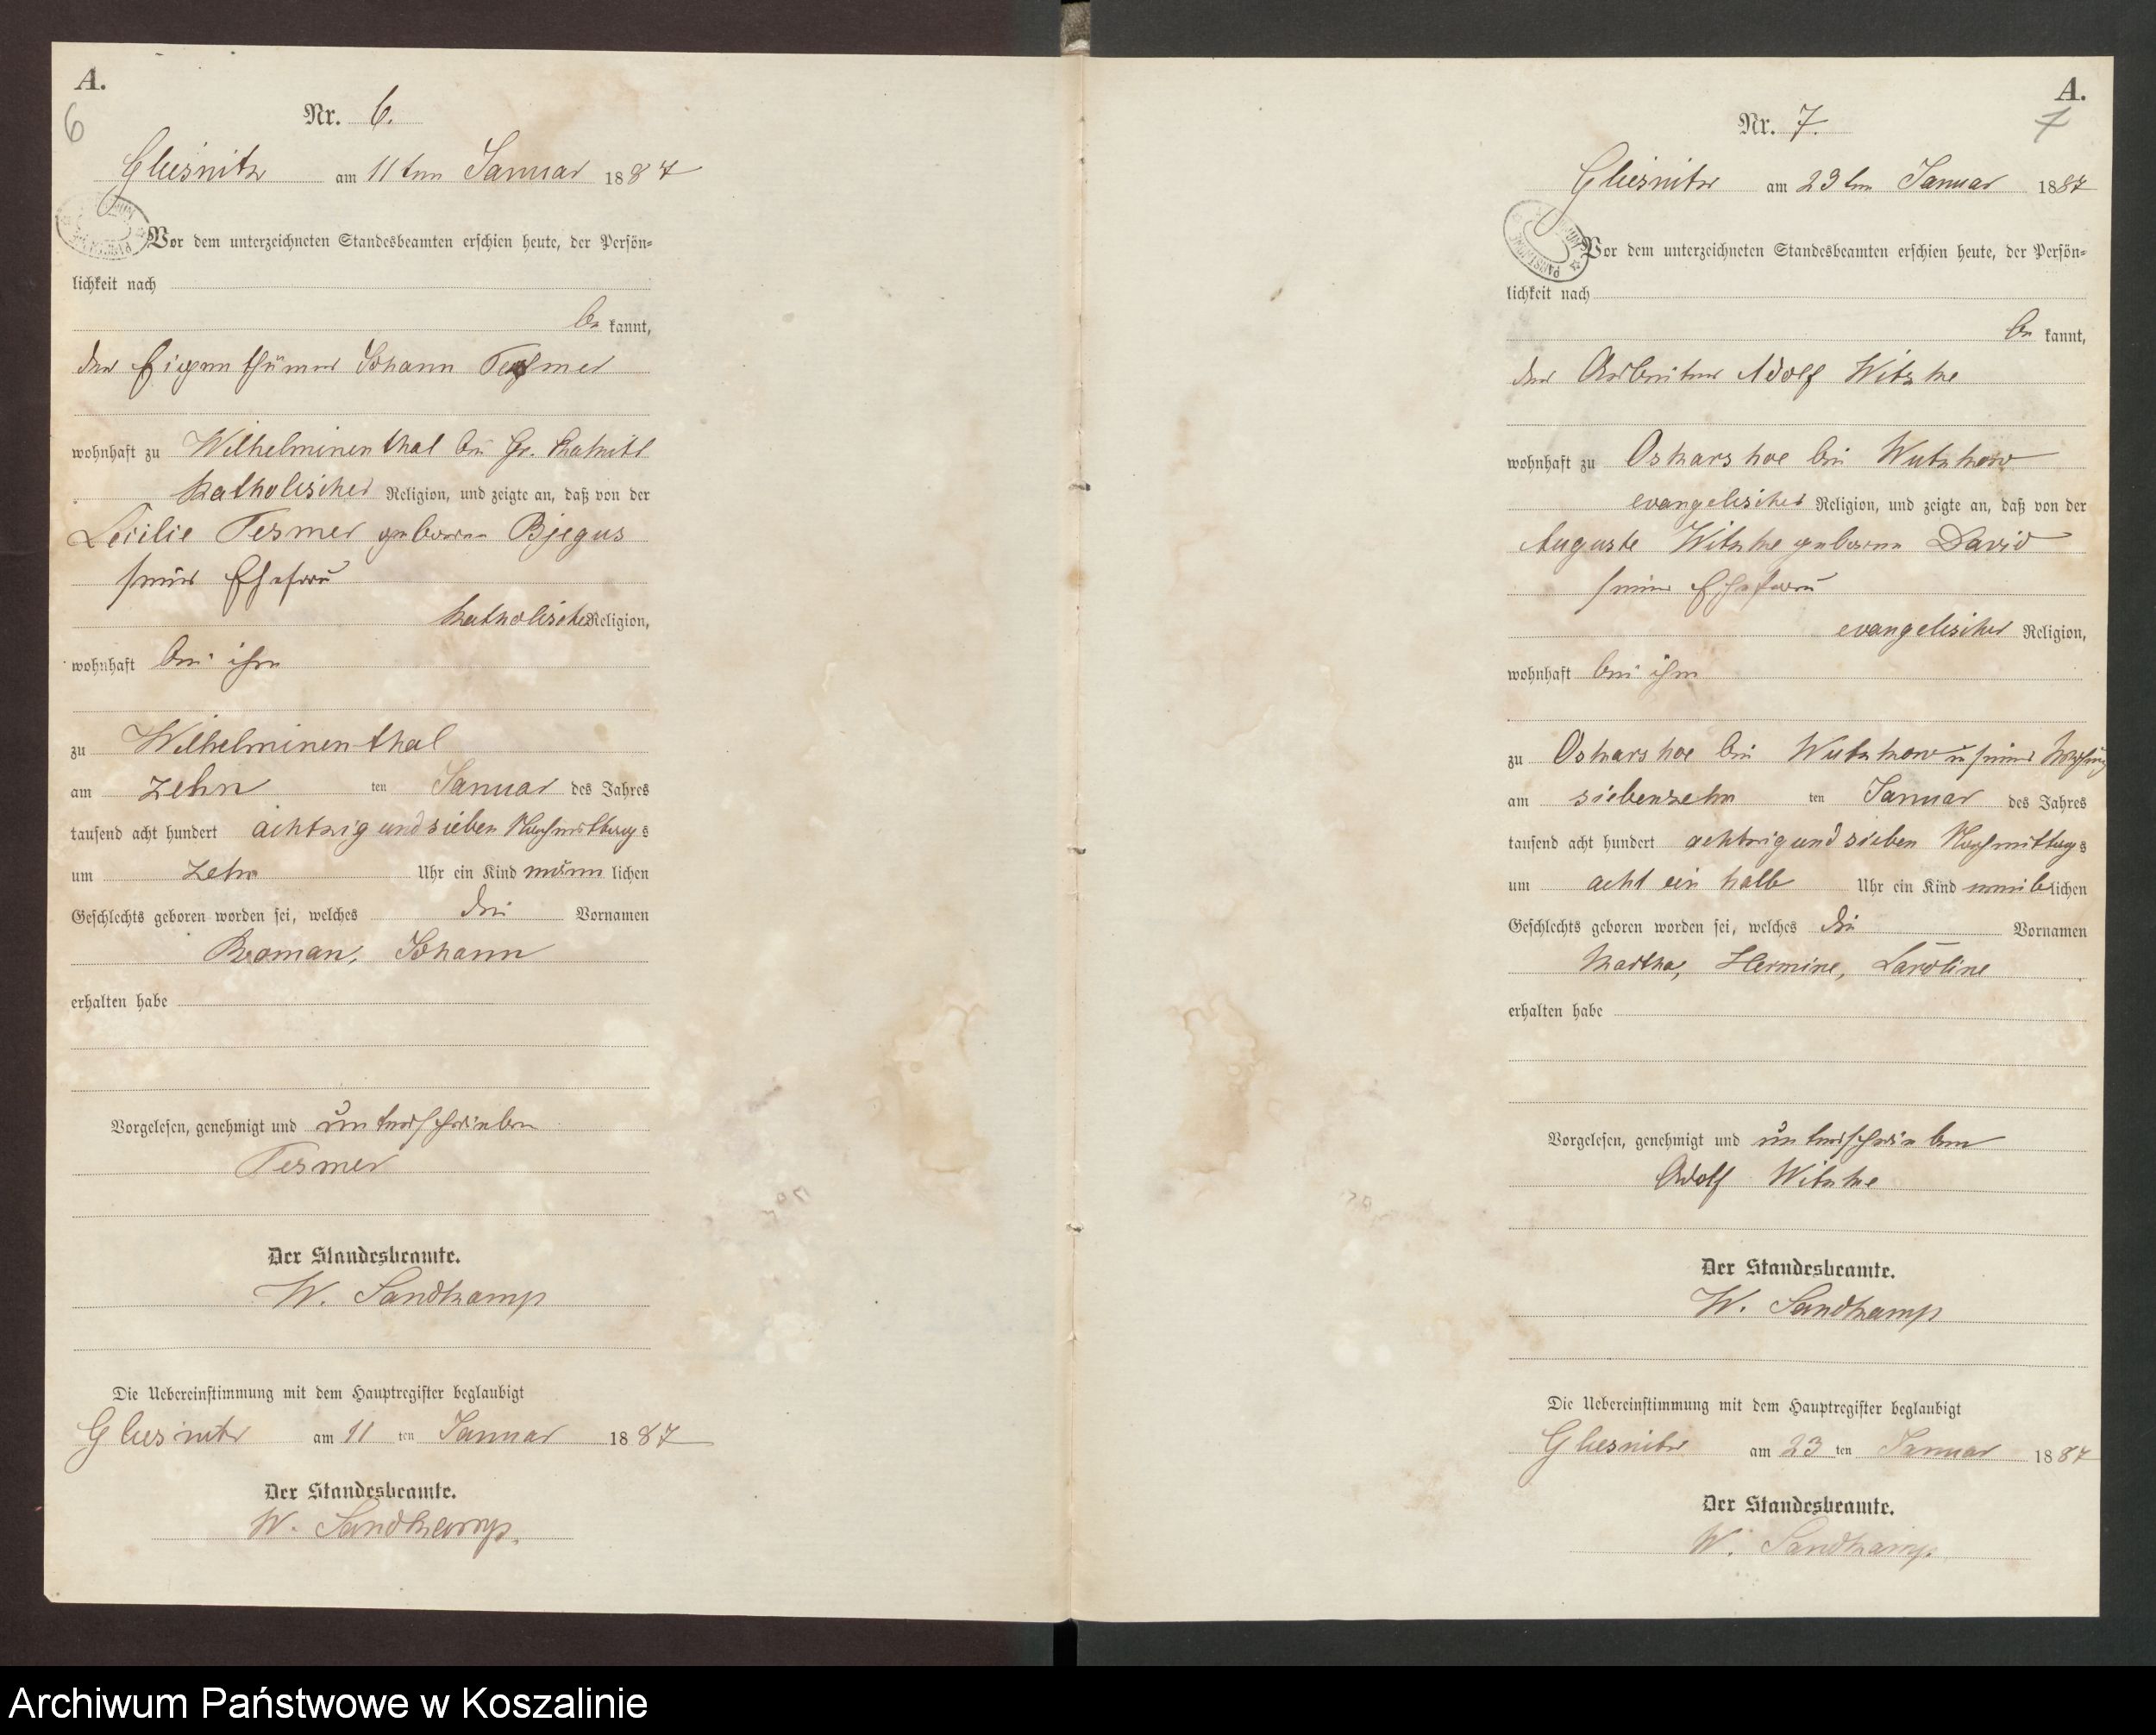 A.
6
Nr. 6.
Gliesnitz am 11ten Januar 1887
Vor dem unterzeichneten Standesbeamten erschien heute, der Persön=
lichkeit nach
be kannt,
der Eigenthümer Johann Tesmer
wohnhaft zu Wilhelminenthal bei Gr.
katholischer Religion, und zeigte an, daß von der
Cecilie Tesmer geborene Bjegus
seiner Ehefrau
katholischer Religion,
wohnhaft bei ihm
zu Wilhelminenthal
am zehn ten Januar des Jahres
tausend acht hundert achtzig und sieben Nachmittags
um zehn Uhr ein Kind männ lichen
Geschlechts geboren worden sei, welches die Vornamen
Roman, Johann
erhalten habe
Vorgelesen, genehmigt und unterschrieben
Tesmer
Der Standesbeamte.
W. Sandkamp
Die Uebereinstimmung mit dem Hauptregister beglaubigt
Gliesnitz am 11 ten Januar 1887
Der Standesbeamte.
W. Sandkamp.
A.
7
Nr. 7.
Gliesnitz am 23ten Januar 1887
Vor dem unterzeichneten Standesbeamten erschien heute, der Persön=
lichkeit nach
be kannt,
der Arbeiter Adolf Witzke
wohnhaft zu Oskarshoe bei Wutzkow
evangelischer Religion, und zeigte an, daß von der
Auguste Witzke geborene David
seiner Ehefrau
evangelischer Religion,
wohnhaft bei ihm
zu Oskarshoe bei Wutzkow in seiner Wohnung
am siebenzehn ten Januar des Jahres
tausend acht hundert achtzig und sieben Nachmittags
um acht ein halb Uhr ein Kind weiblichen
Geschlechts geboren worden sei, welches die Vornamen
Martha, Hermine, Caroline
erhalten habe
Vorgelesen, genehmigt und unterschrieben
Adolf Witzke
Der Standesbeamte.
W. Sandkamp
Die Uebereinstimmung mit dem Hauptregister beglaubigt
Gliesnitz am 23 ten Januar 1887
Der Standesbeamte.
W. Sandkamp.
Archiwum Państwowe w Koszalinie